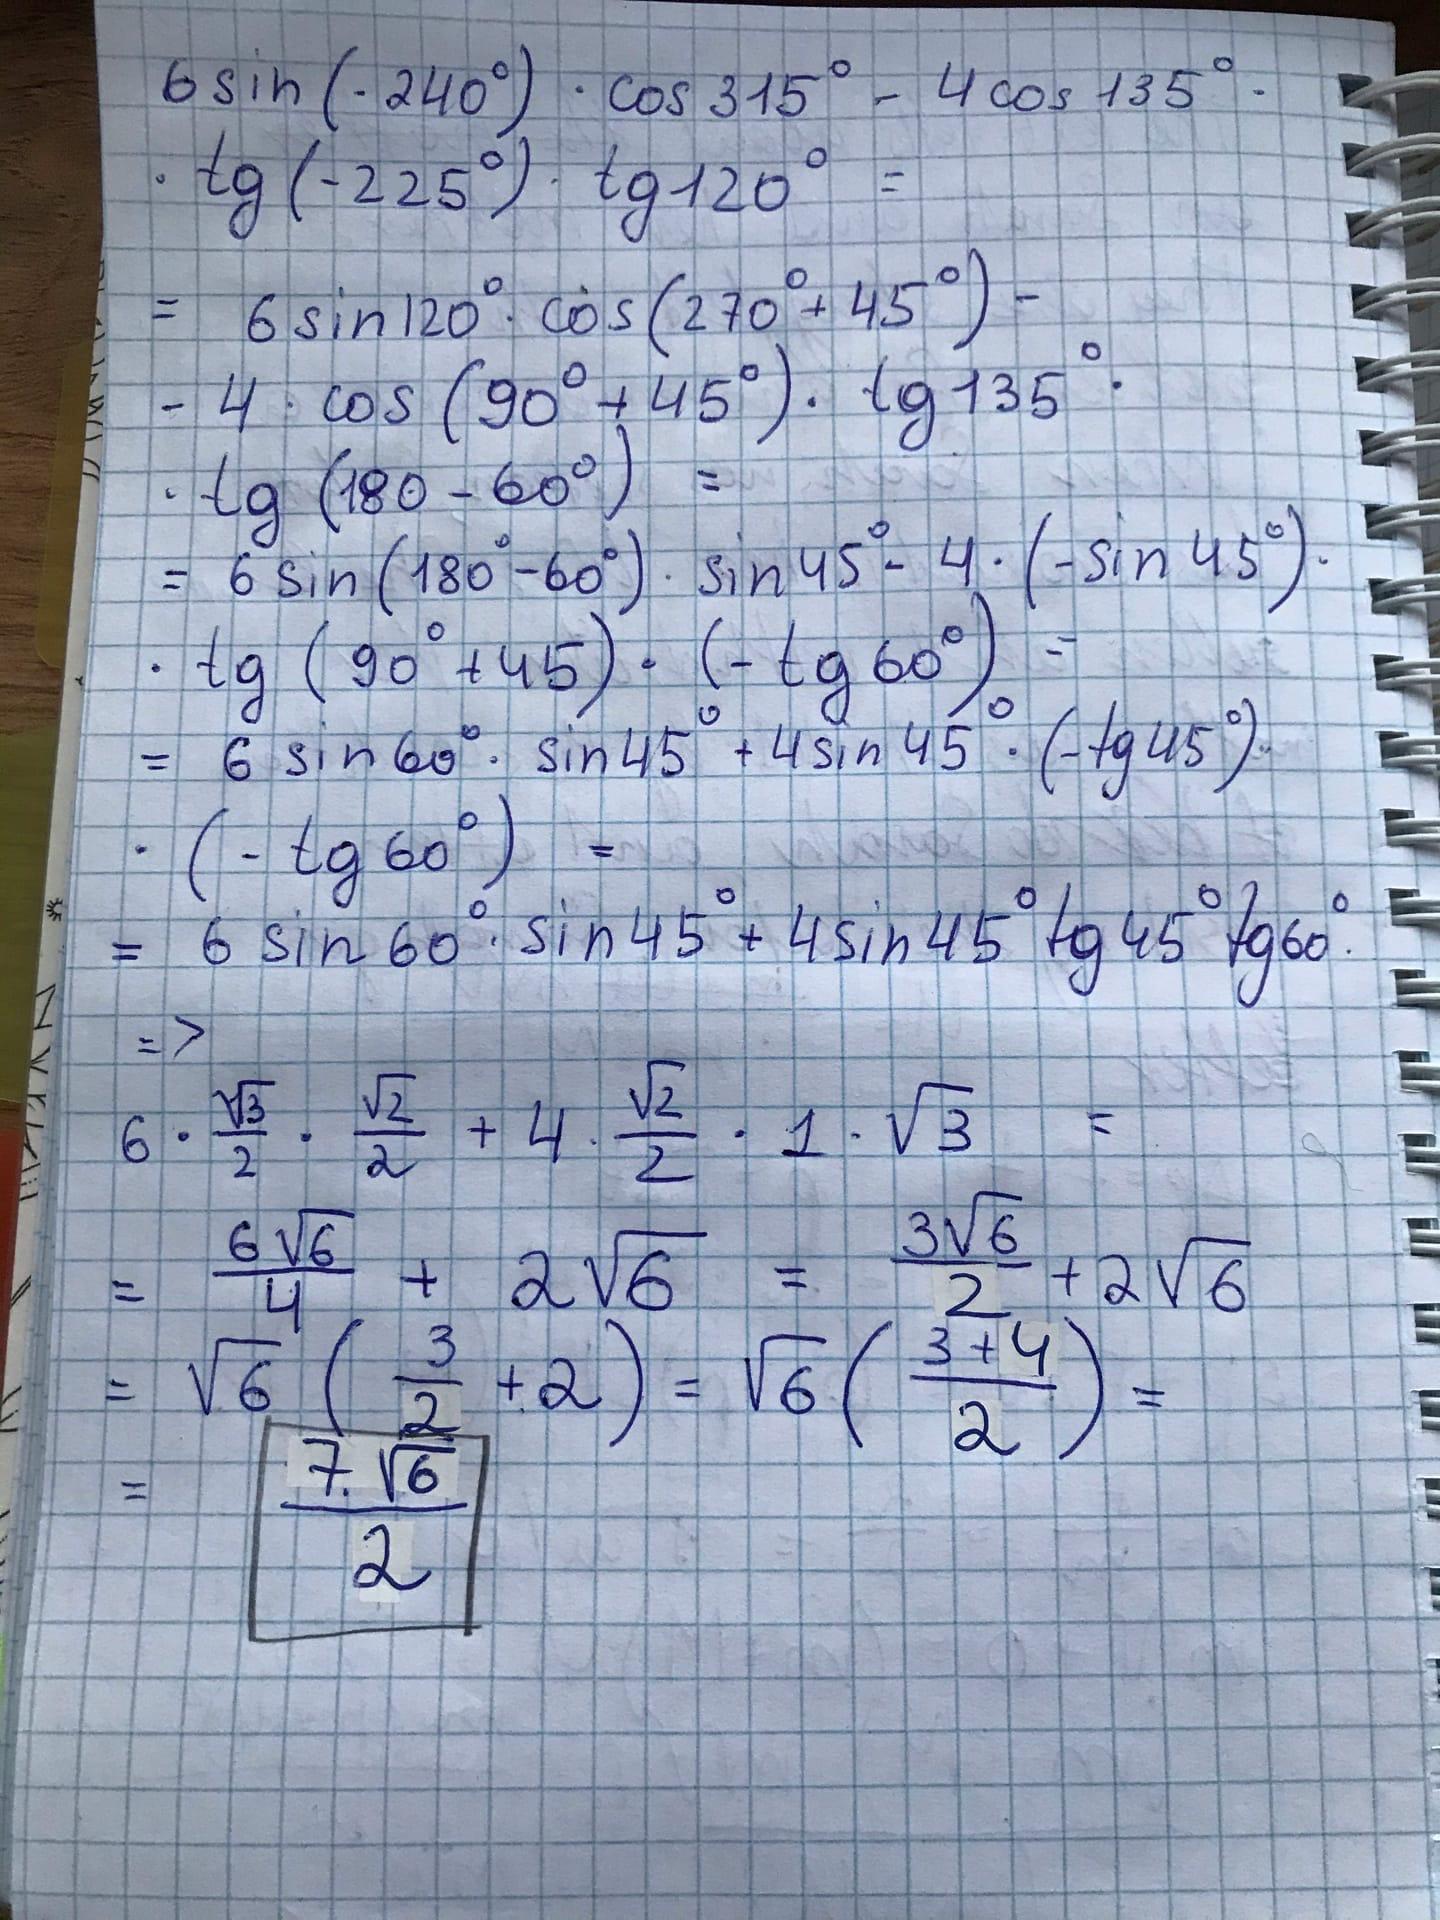 6 sin (-240°) · cos 315° - 4 cos 135° ·
· tg (-225°) · tg 120° =
= 6 sin 120° · cos (270° + 45°) -
- 4 · cos (90° + 45°) · tg 135° ·
· tg (180 - 60°) =
= 6 sin (180° - 60°) · sin 45° - 4 · (- sin 45°) ·
· tg (90° + 45) · (- tg 60°) =
= 6 sin 60° · sin 45° + 4 sin 45° · (- tg 45°) ·
· (- tg 60°) =
= 6 sin 60° · sin 45° + 4 sin 45° tg 45° tg 60°.
=>
6 · √3/2 · √2/2 + 4 · √2/2 · 1 · √3 =
= 6√6/4 + 2√6 = 3√6/2 + 2√6
= √6 (3/2 + 2) = √6 ((3+4)/2) =
= 7·√6/2